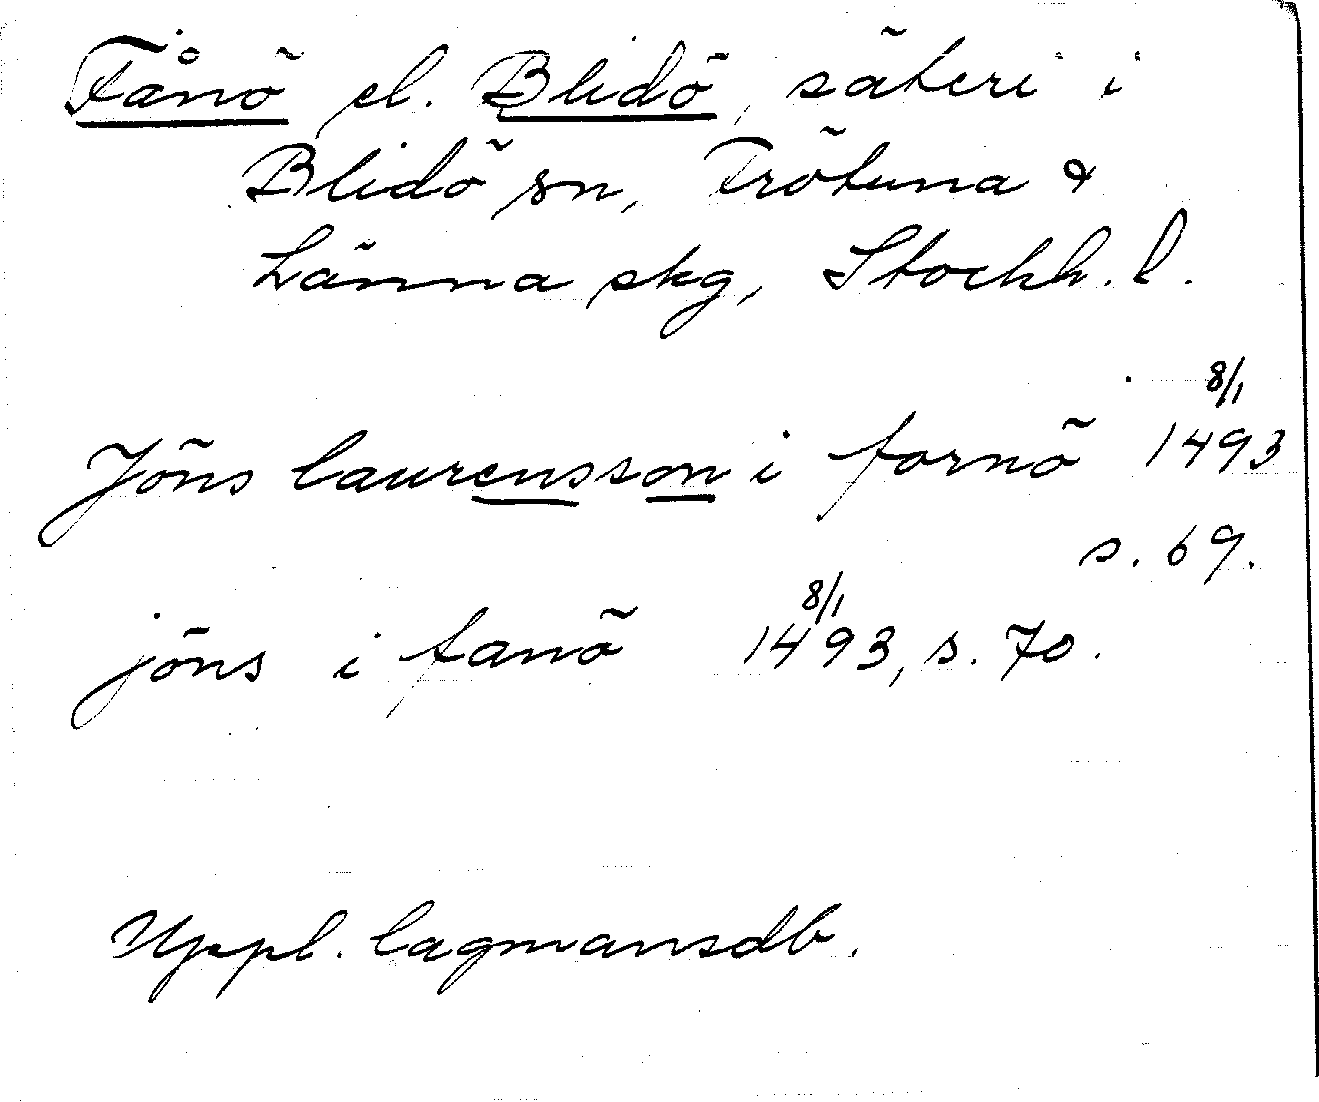 Fånö el. Blidö, säteri i
Blidö sn, Frötuna &
Länna skg, Stockh. l.
8/1
Jöns laurensson i fornö 1493
s. 69.
8/1
jöns i fanö 1493, s. 70.
Uppl. lagmansdb.